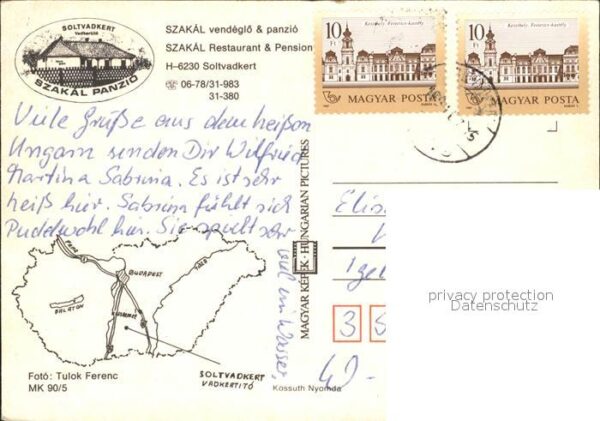 SOLTVADKERT
Vadkertitó
SZAKÁL PANZIÓ
SZAKÁL vendéglő & panzió
SZAKÁL Restaurant & Pension
H–6230 Soltvadkert
☏ 06-78/31-983
31-380
10 Ft
Keszthely, Festetics-kastély
MAGYAR POSTA
10 Ft
Keszthely, Festetics-kastély
MAGYAR POSTA
Viele Grüße aus dem heißen
Ungarn senden Dir Wilfried
Martina Sabrina. Es ist sehr
heiß hier. Sabrina fühlt sich
Pudelwohl hier. Sie spielt sehr
viel im Wasser,
BUDAPEST
BALATON
SOLTVADKERT
VADKERTITÓ
Fotó: Tulok Ferenc
MK 90/5
Kossuth Nyomda
MAGYAR KÉPEK · HUNGARIAN PICTURES
Elis
3
privacy protection
Datenschutz